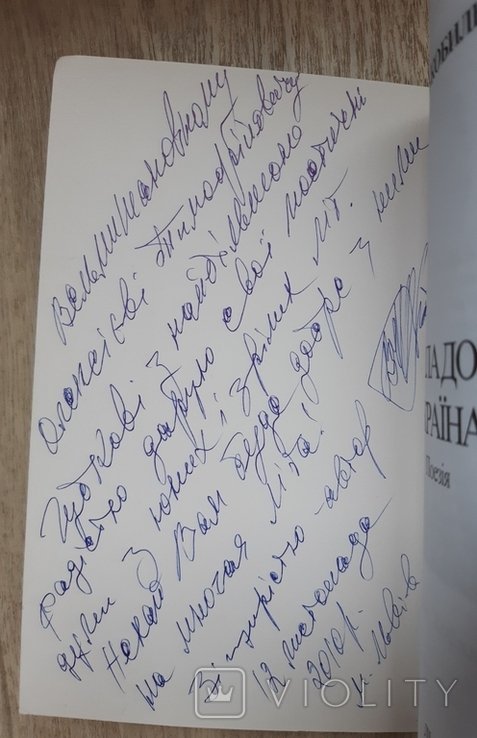 Вельмишановному
Олексієві Тимофійовичу
Гудкові з найщирішою
радістю дарую свої поетичні
думи з юних і зрілих літ.
Нехай Вам буде добре з ними
на многая літа!
З щирістю автор
12 листопада
2010 р.
м. Львів
ОБИЛ
ЛАДО
РАЇНА
Поезія
VIOLITY